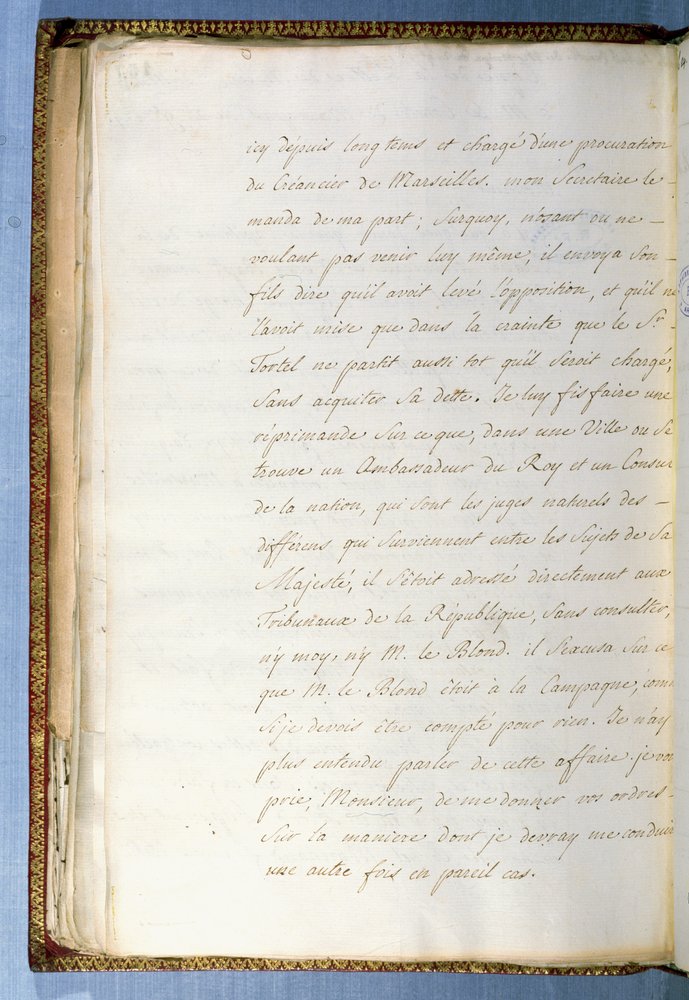 icy dépuis longtems et chargé d'une procuration
du Créancier de Marseilles. mon Secretaire le
manda de ma part; surquoy, n'osant ou ne
voulant pas venir luy même, il envoya son
fils dire qu'il avoit levé l'opposition, et qu'il ne
l'avoit mise que dans la crainte que le Sr.
Tortel ne partit aussi tot qu'il seroit chargé,
sans acquiter sa dette. Je luy fis faire une
réprimande sur ce que, dans une Ville ou se
trouve un Ambassadeur du Roy et un Consul
de la nation, qui sont les juges naturels des
différens qui surviennent entre les sujets de sa
Majesté, il s'étoit adressé directement aux
Tribunaux de la République, sans consulter,
n'y moy, n'y M. le Blond. il s'excusa sur ce
que M. le Blond étoit à la Campagne, com
si je devois être compté pour rien. Je n'ay
plus entendu parler de cette affaire. je vou
prie, Monsieur, de me donner vos ordres
sur la maniere dont je devray me conduir
une autre fois en pareil cas.